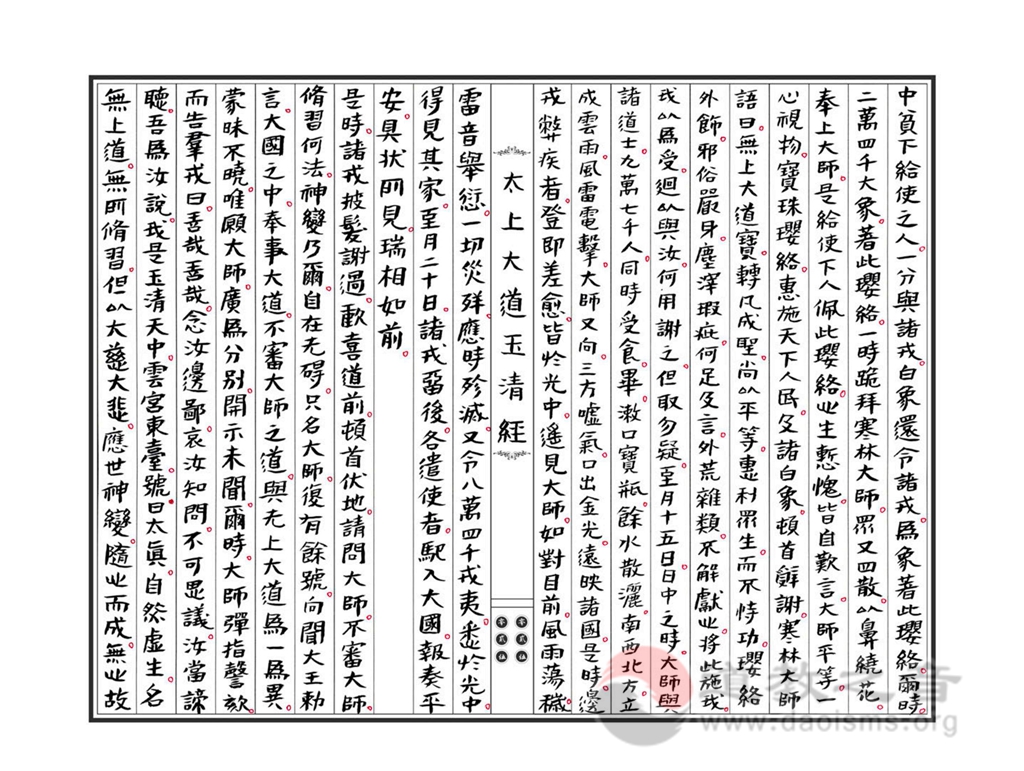 中貧下給使之人一分與諸戎白象還令諸戎爲象著此瓔絡爾時
二萬四千大象著此瓔絡一時跪拜寒林大師眾又四散以鼻繞花
奉上大師是給使下人佩此瓔絡生慙愧皆自歎言大師平等一
心視物寶珠瓔絡惠施天下人民及諸白象頓首辭謝寒林大師
語曰無上大道寶轉凡成聖尚以平等惠利眾生而不恃功瓔絡
外飾邪俗嚴身塵滓瑕疵何足及言外荒雜類不解獻此將此施我
我以爲受迴以與汝何用謝之但取勿疑至月十五日日中之時大師與
諸道士九萬七千人同時受食畢漱口寶瓶餘水散灑南西北方立
成雲雨風雷電擊大師又向三方噓氣口出金光遠映諸國是時邊
戎弊疾者登即差愈皆於光中遙見大師如對目前風雨蕩穢
太上大道玉清經
雷音舉愆一切災殃應時殄滅又令八萬四千戎夷悉於光中
得見其家至月二十日諸戎畱後各遣使者馳入大國報奏平
安具狀所見瑞相如前
是時諸戎披髮謝過歡喜道前頓首伏地請問大師不審大師
脩習何法神變乃爾自在无碍只名大師復有餘號向聞大王勅
言大國之中奉事大道不審大師之道與无上大道爲一爲異
蒙昧不曉唯願大師廣爲分別開示未聞爾時大師彈指謦欬
而告羣戎曰善哉善哉念汝邊鄙哀汝知問不可思議汝當諦
聽吾爲汝說我是玉清天中雲宮東臺號曰太眞自然虛生名
無上道無所脩習但以大慈大悲應世神變隨此而成無此故
道教之音
www.daoisms.org